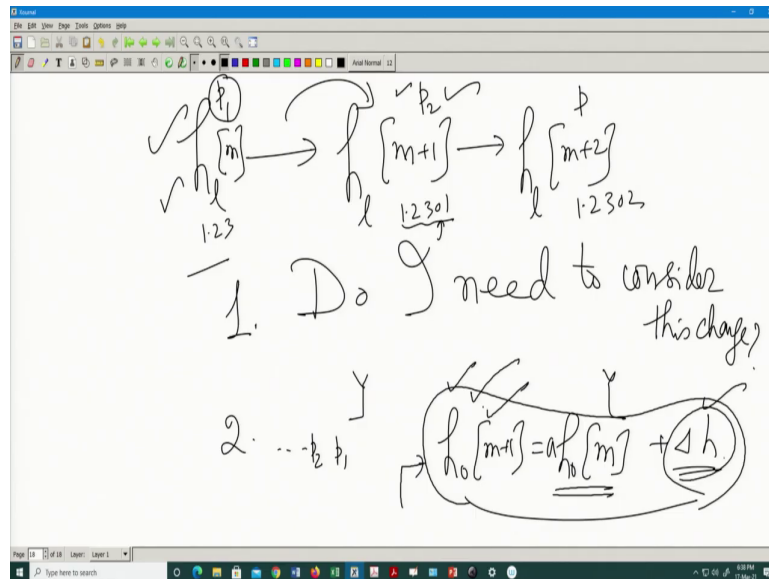 Xournal
File Edit View Page Tools Options Help
Arial Normal 12
p₁ p₂ p
h_l[m] → h_l[m+1] → h_l[m+2]
1.23 1.2301 1.2302
1. Do I need to consider
this change?
2. ...p₂ p₁ h₀[m+1] = ah₀[m] + Δh
Page 18 of 18 Layer: Layer 1
Type here to search
6:38 PM
17-Mar-21